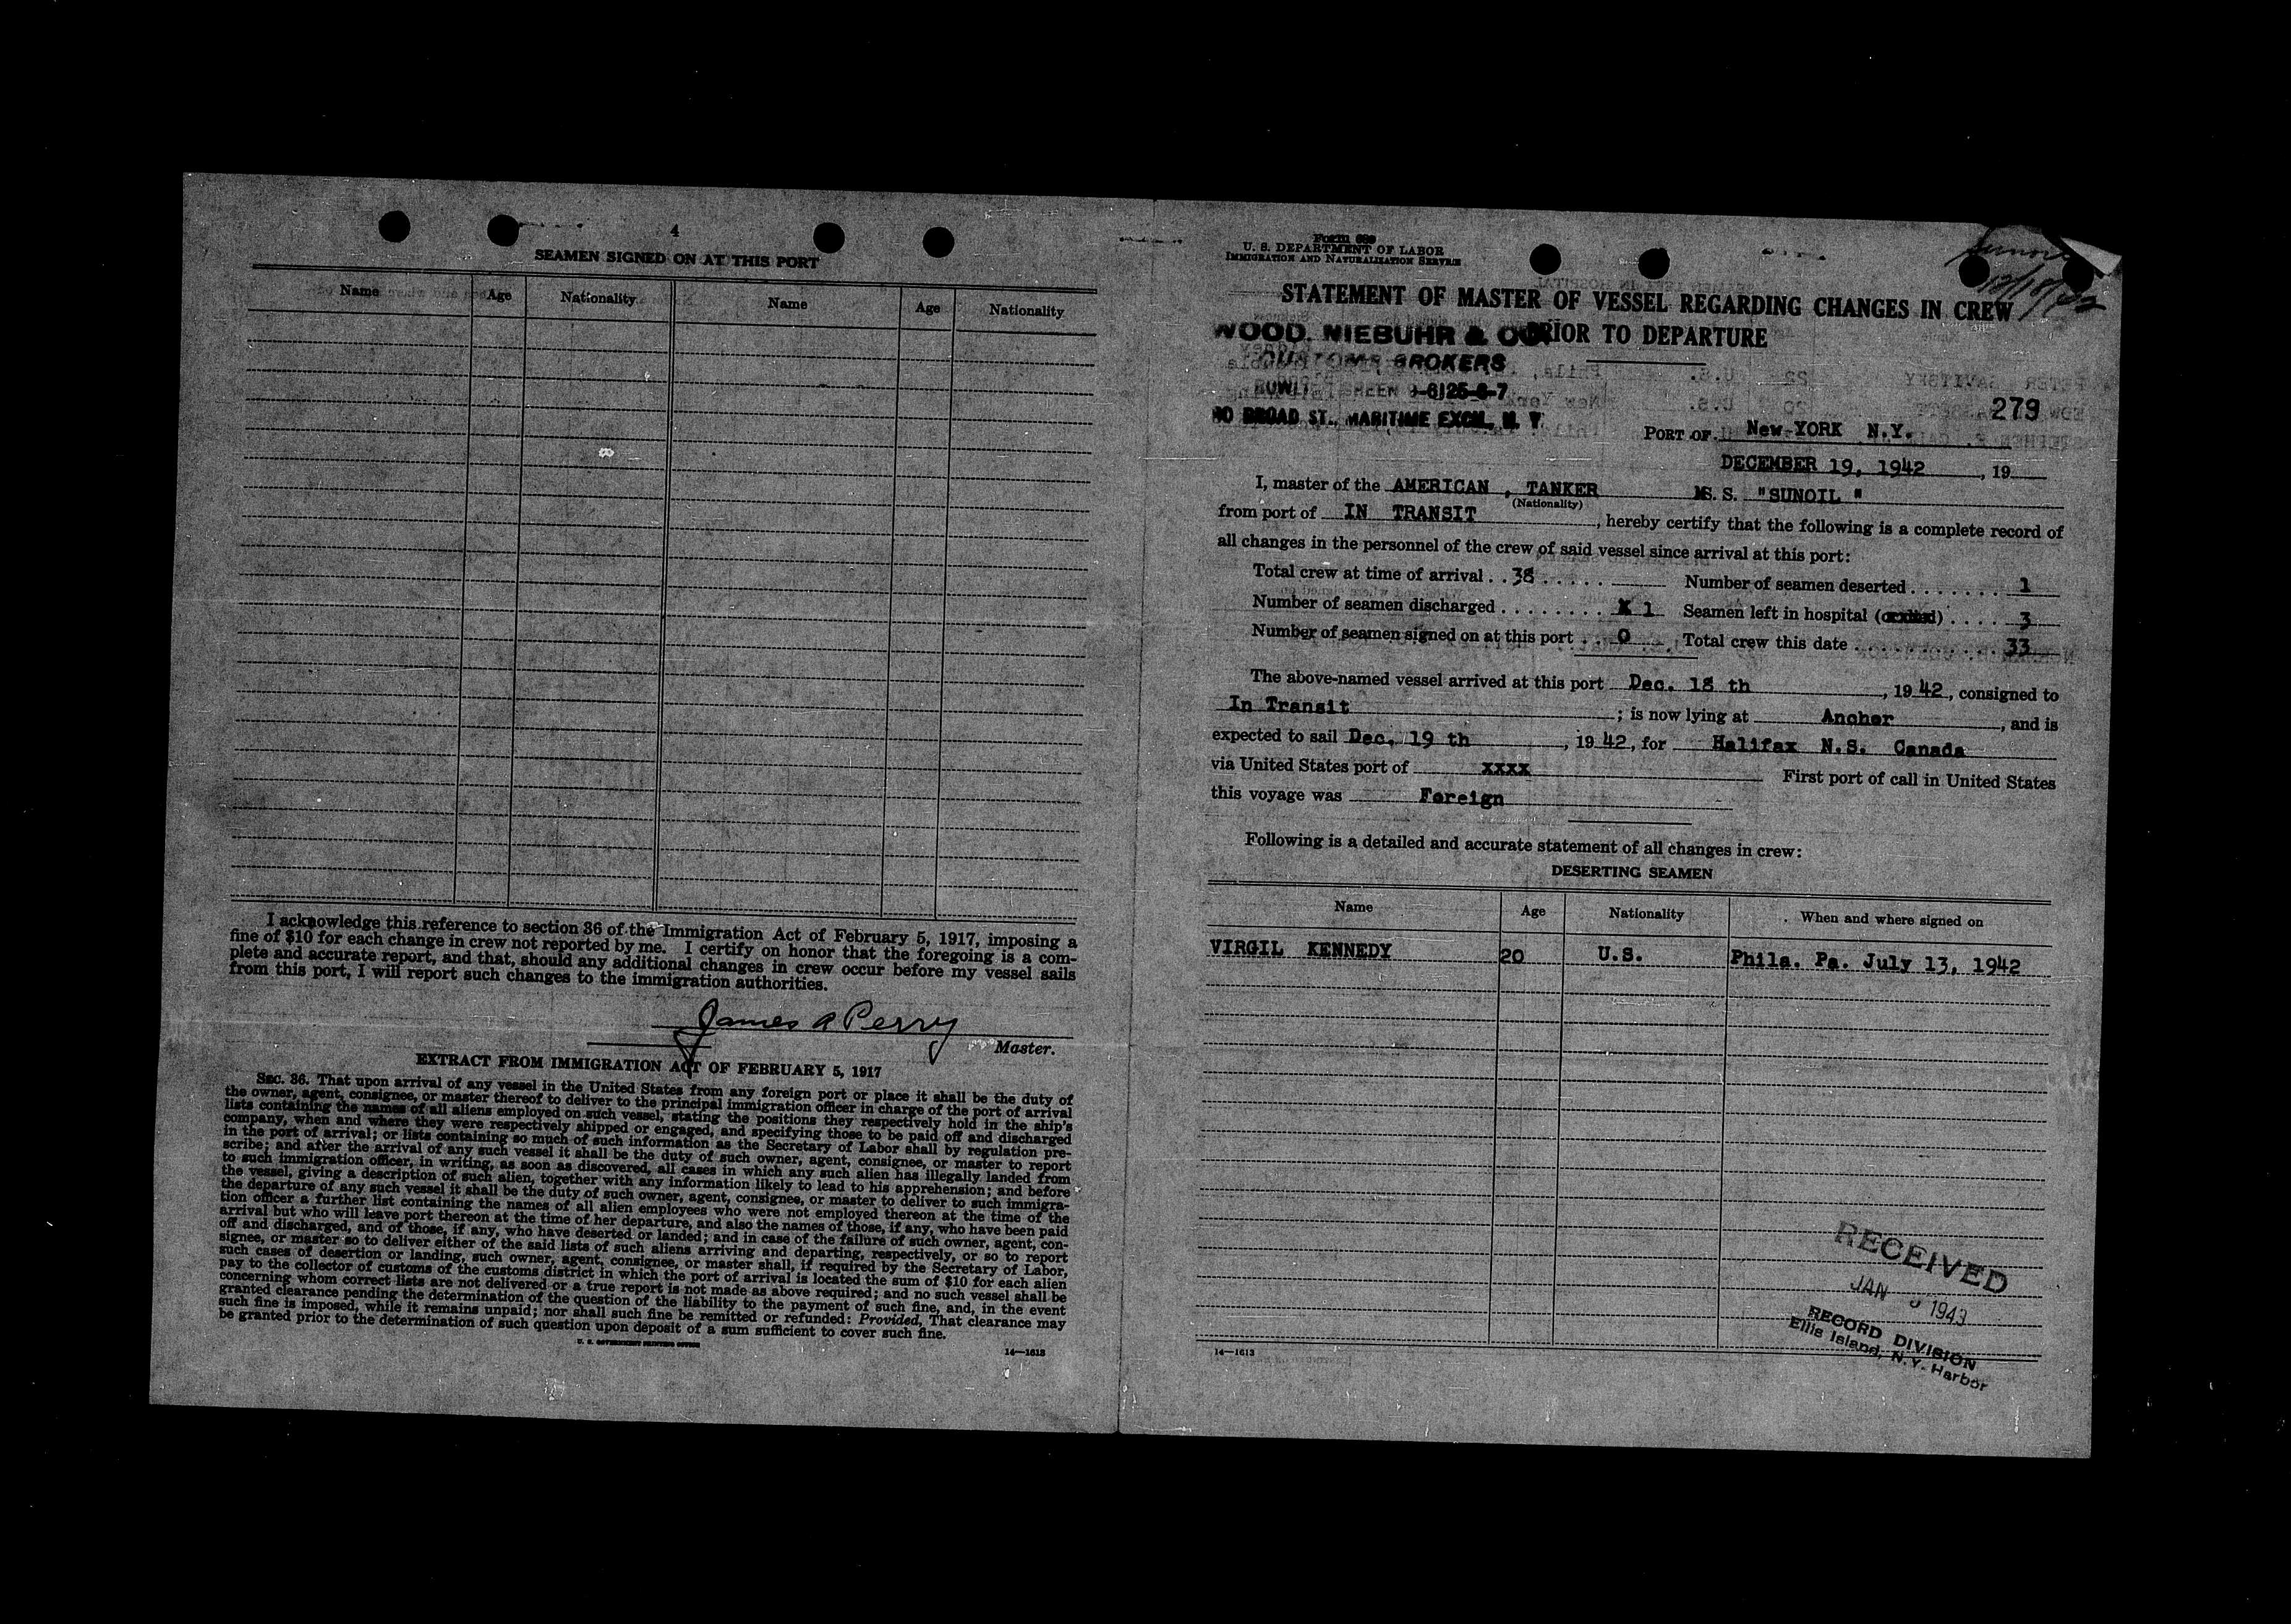 4
SEAMEN SIGNED ON AT THIS PORT
Name Age Nationality Name Age Nationality
I acknowledge this reference to section 36 of the Immigration Act of February 5, 1917, imposing a
fine of $10 for each change in crew not reported by me. I certify on honor that the foregoing is a com-
plete and accurate report, and that, should any additional changes in crew occur before my vessel sails
from this port, I will report such changes to the immigration authorities.
James A Perry
Master.
EXTRACT FROM IMMIGRATION ACT OF FEBRUARY 5, 1917
SEC. 36. That upon arrival of any vessel in the United States from any foreign port or place it shall be the duty of
the owner, agent, consignee, or master thereof to deliver to the principal immigration officer in charge of the port of arrival
lists containing the names of all aliens employed on such vessel, stating the positions they respectively hold in the ship's
company, when and where they were respectively shipped or engaged, and specifying those to be paid off and discharged
in the port of arrival; or lists containing so much of such information as the Secretary of Labor shall by regulation pre-
scribe; and after the arrival of any such vessel it shall be the duty of such owner, agent, consignee, or master to report
to such immigration officer, in writing, as soon as discovered, all cases in which any such alien has illegally landed from
the vessel, giving a description of such alien, together with any information likely to lead to his apprehension; and before
the departure of any such vessel it shall be the duty of such owner, agent, consignee, or master to deliver to such immigra-
tion officer a further list containing the names of all alien employees who were not employed thereon at the time of the
arrival but who will leave port thereon at the time of her departure, and also the names of those, if any, who have been paid
off and discharged, and of those, if any, who have deserted or landed; and in case of the failure of such owner, agent, con-
signee, or master so to deliver either of the said lists of such aliens arriving and departing, respectively, or so to report
such cases of desertion or landing, such owner, agent, consignee, or master shall, if required by the Secretary of Labor,
pay to the collector of customs of the customs district in which the port of arrival is located the sum of $10 for each alien
concerning whom correct lists are not delivered or a true report is not made as above required; and no such vessel shall be
granted clearance pending the determination of the question of the liability to the payment of such fine, and, in the event
such fine is imposed, while it remains unpaid; nor shall such fine be remitted or refunded: Provided, That clearance may
be granted prior to the determination of such question upon deposit of a sum sufficient to cover such fine.
U. S. GOVERNMENT PRINTING OFFICE
14—1613
Form 689
U. S. DEPARTMENT OF LABOR
IMMIGRATION AND NATURALIZATION SERVICE
STATEMENT OF MASTER OF VESSEL REGARDING CHANGES IN CREW
PRIOR TO DEPARTURE
WOOD, NIEBUHR & CO.
CUSTOMS BROKERS
BOWLING GREEN 9-6125-6-7
BROAD ST., MARITIME EXCH., N. Y.
279
PORT OF New YORK N.Y.
DECEMBER 19, 1942, 19
I, master of the AMERICAN, TANKER MS. S. "SUNOIL"
(Nationality)
from port of IN TRANSIT, hereby certify that the following is a complete record of
all changes in the personnel of the crew of said vessel since arrival at this port:
Total crew at time of arrival . . 38 Number of seamen deserted . . . . . . . 1
Number of seamen discharged . . . . . . . . X 1 Seamen left in hospital ( ) . . . . 3
Number of seamen signed on at this port . . 0 Total crew this date . . . . . . . . . . 33
The above-named vessel arrived at this port Dec. 18 th, 1942, consigned to
In Transit; is now lying at Anchor, and is
expected to sail Dec. 19 th, 1942, for Halifax N.S. Canada
via United States port of xxxx First port of call in United States
this voyage was Foreign
Following is a detailed and accurate statement of all changes in crew:
DESERTING SEAMEN
Name Age Nationality When and where signed on
VIRGIL KENNEDY 20 U.S. Phila. Pa. July 13, 1942
RECEIVED
JAN 1943
RECORD DIVISION
Ellis Island, N.Y. Harbor
14—1613